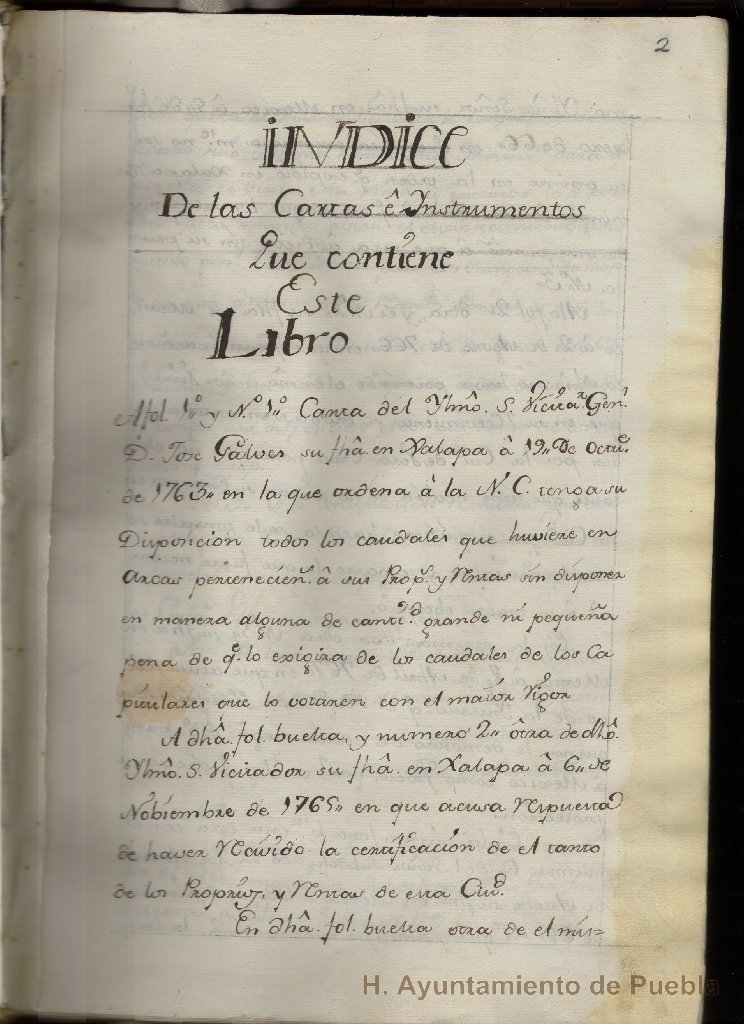 2
INDICE
De las Cartas ê Instrumentos
Que contiene
Este
Libro
A fol. 1º y Nº 1º Carta del Yltmô. S. Vicitaºr Genl.
D. Jose Galves su fhâ. en Xalapa â 19,, De Octre.
de 1763,, en la que ordena â la N. C. tenga su
Disposicion todos los caudales que huviere en
arcas pertenecien.s â sus Prop.s y Rentas sin disponer
en manera alguna de canti.d grande ni pequeña
pena de q.e lo exigira de los caudales de los Ca
pitulares que lo votaren con el maior Vigor
A dhâ. fol. buelta, y numero 2,, ôtra de dhô.
Yltmô. S. Vicitador su fhâ. en Xalapa â 6,, de
Nobiembre de 1765,, en que acusa Respuesta
de haver Recivido la certificacion de el tanto
de los Proprios. y Rentas de esta Ciud.
En dhâ. fol. buelta otra de el mis=
H. Ayuntamiento de Puebla